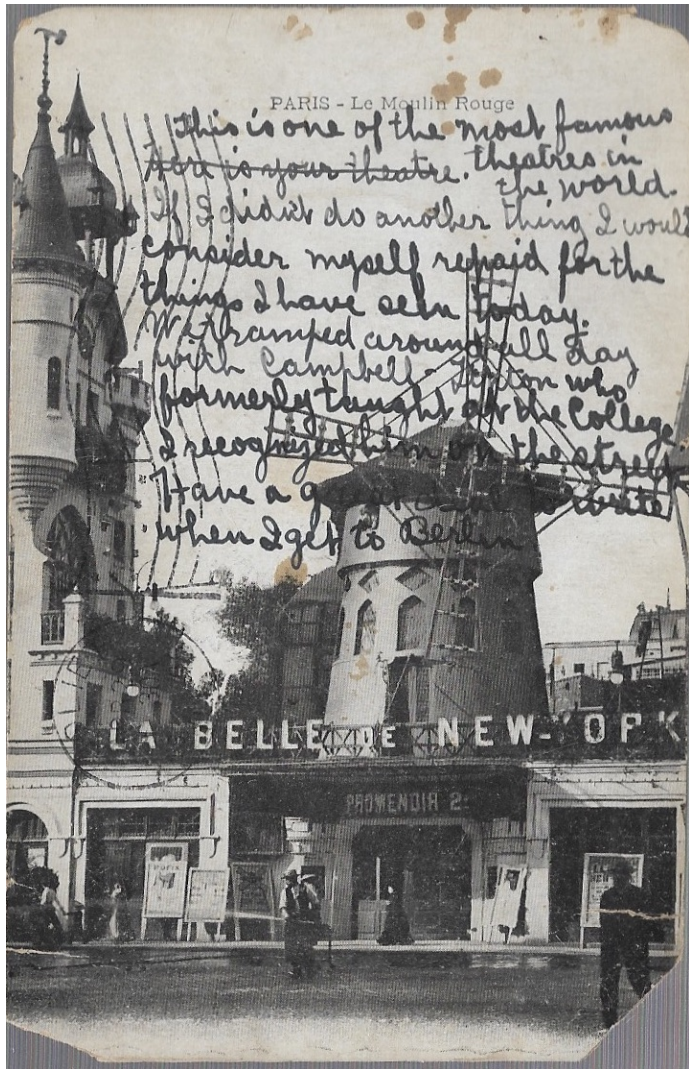 PARIS - Le Moulin Rouge
This is one of the most famous
Here is your theatre. theatres in
the world.
If I didn't do another thing I would
consider myself repaid for the
things I have seen today.
We tramped around all day
with Campbell - who
formerly taught at the College
I recognized him on the street
Have a great deal to write
when I get to Berlin
LA BELLE DE NEW-YORK
PROMENOIR 2